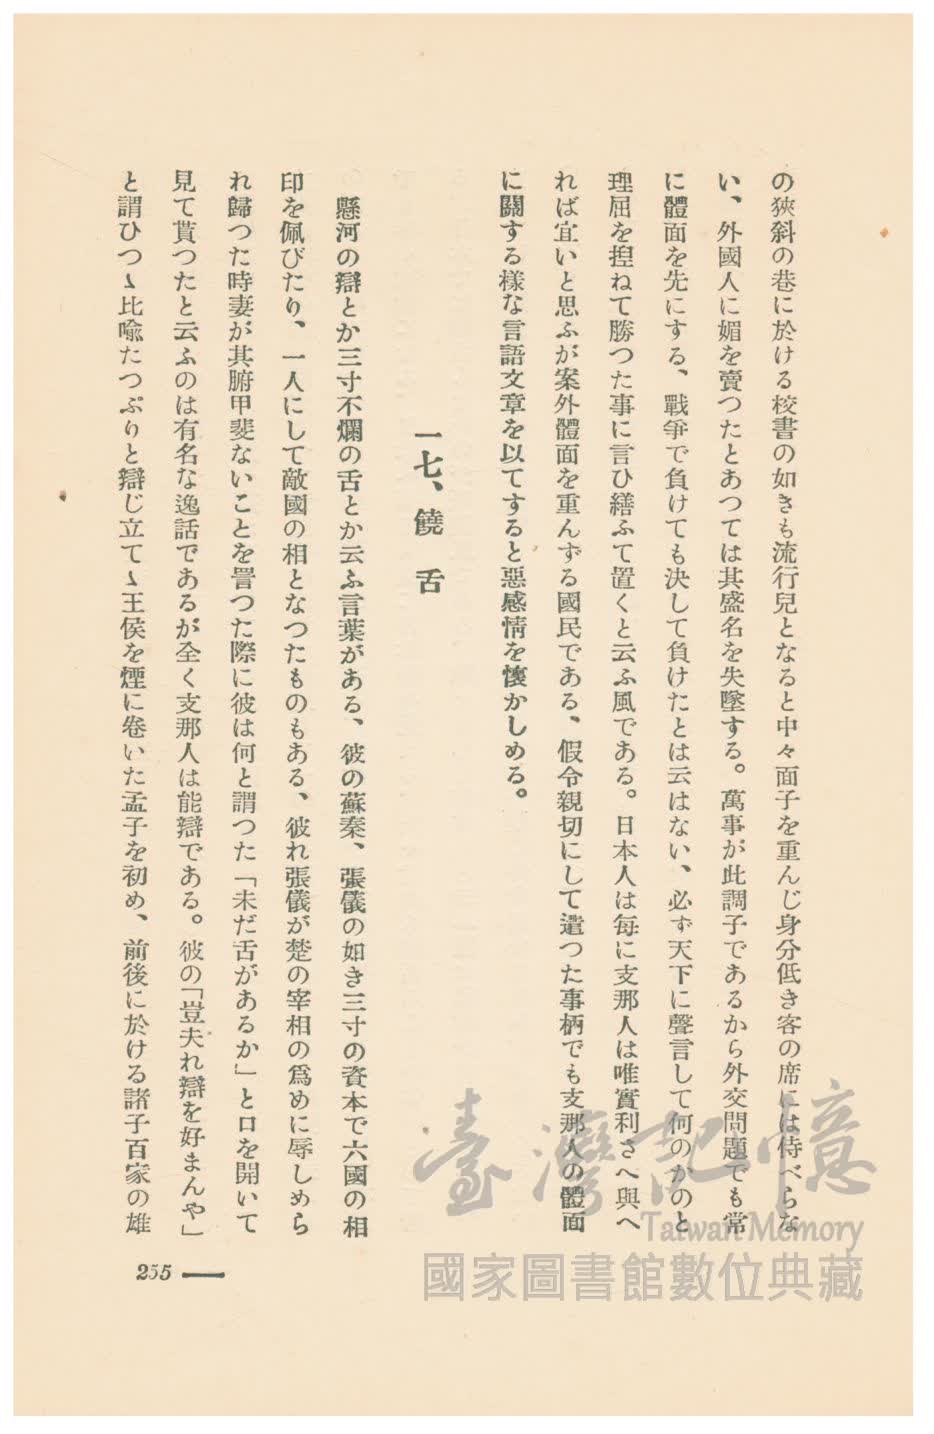 の狹斜の巷に於ける校書の如きも流行兒となると中々面子を重んじ身分低き客の席には侍べらな
い、外國人に媚を賣つたとあつては其盛名を失墜する。萬事が此調子であるから外交問題でも常
に體面を先にする、戰爭で負けても決して負けたとは云はない、必ず天下に聲言して何のかのと
理屈を揑ねて勝つた事に言ひ繕ふて置くと云ふ風である。日本人は每に支那人は唯實利さへ與へ
れば宜いと思ふが案外體面を重んずる國民である、假令親切にして遣つた事柄でも支那人の體面
に關する樣な言語文章を以てすると惡感情を懷かしめる。
一七、饒舌
懸河の辯とか三寸不爛の舌とか云ふ言葉がある、彼の蘇秦、張儀の如き三寸の資本で六國の相
印を佩びたり、一人にして敵國の相となつたものもある、彼れ張儀が楚の宰相の爲めに辱しめら
れ歸つた時妻が其腑甲斐ないことを詈つた際に彼は何と謂つた「未だ舌があるか」と口を開いて
見て貰つたと云ふのは有名な逸話であるが全く支那人は能辯である。彼の「豈夫れ辯を好まんや」
と謂ひつゝ比喩たつぷりと辯じ立てゝ王侯を煙に卷いた孟子を初め、前後に於ける諸子百家の雄
255
臺灣記憶
Taiwan Memory
國家圖書館數位典藏